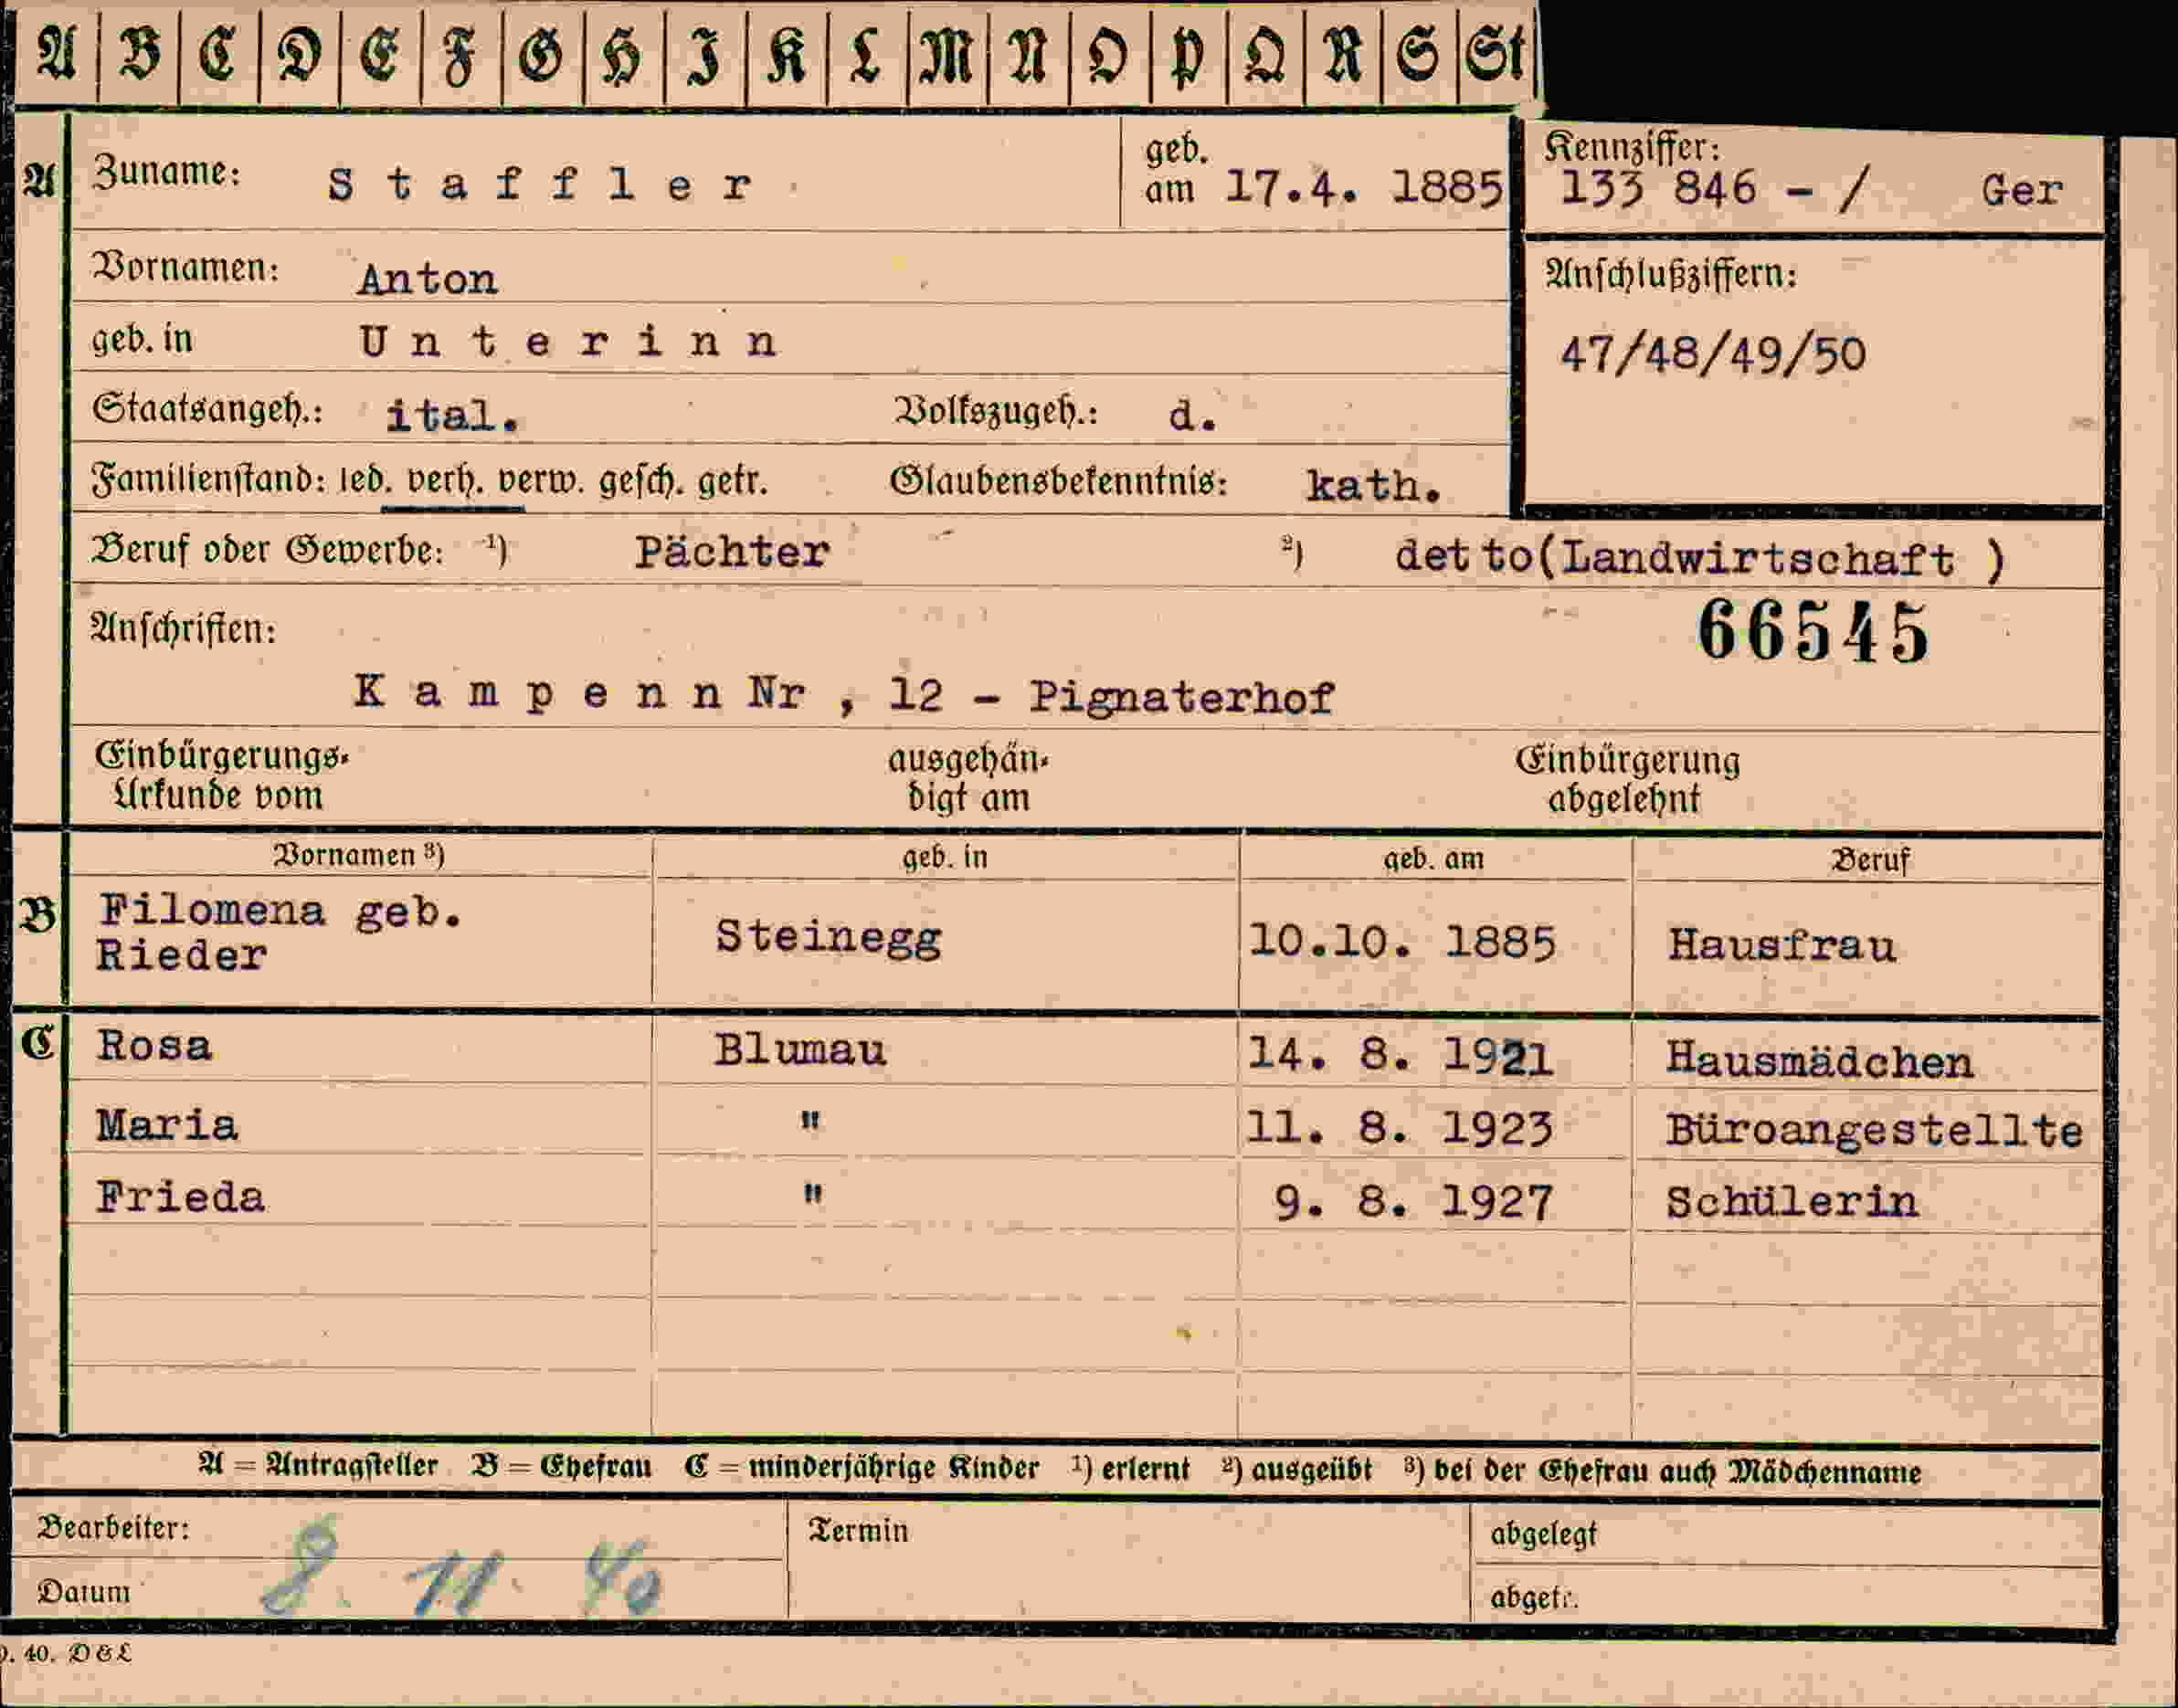 A B C D E F G H I K L M N O P Q R S St
A Zuname: Staffler geb. am 17.4. 1885 Kennziffer: 133 846 - / Ger
Vornamen: Anton Anschlußziffern:
geb. in Unterinn 47/48/49/50
Staatsangeh.: ital. Volkszugeh.: d.
Familienstand: led. verh. verw. gesch. getr. Glaubensbekenntnis: kath.
Beruf oder Gewerbe: ¹) Pächter ²) detto(Landwirtschaft )
Anschriften: 66545
Kampenn Nr , 12 - Pignaterhof
Einbürgerungs- ausgehän- Einbürgerung
Urkunde vom digt am abgelehnt
Vornamen ³) geb. in geb. am Beruf
B Filomena geb.
Rieder Steinegg 10.10. 1885 Hausfrau
C Rosa Blumau 14. 8. 1921 Hausmädchen
Maria " 11. 8. 1923 Büroangestellte
Frieda " 9. 8. 1927 Schülerin
A = Antragsteller B = Ehefrau C = minderjährige Kinder ¹) erlernt ²) ausgeübt ³) bei der Ehefrau auch Mädchenname
Bearbeiter: Termin abgelegt
Datum 8. 11. 40 abgetr.
40. D & L